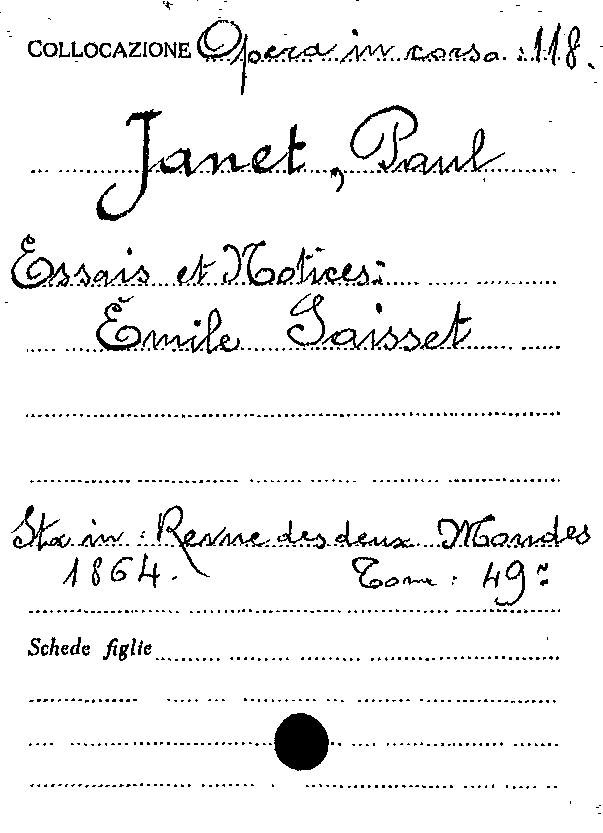 COLLOCAZIONE Opera in corso. 118.
Janet, Paul
Essais et Notices:
Émile Saisset
Sta in: Revue des deux Mondes
1864. Tome: 49º
Schede figlie